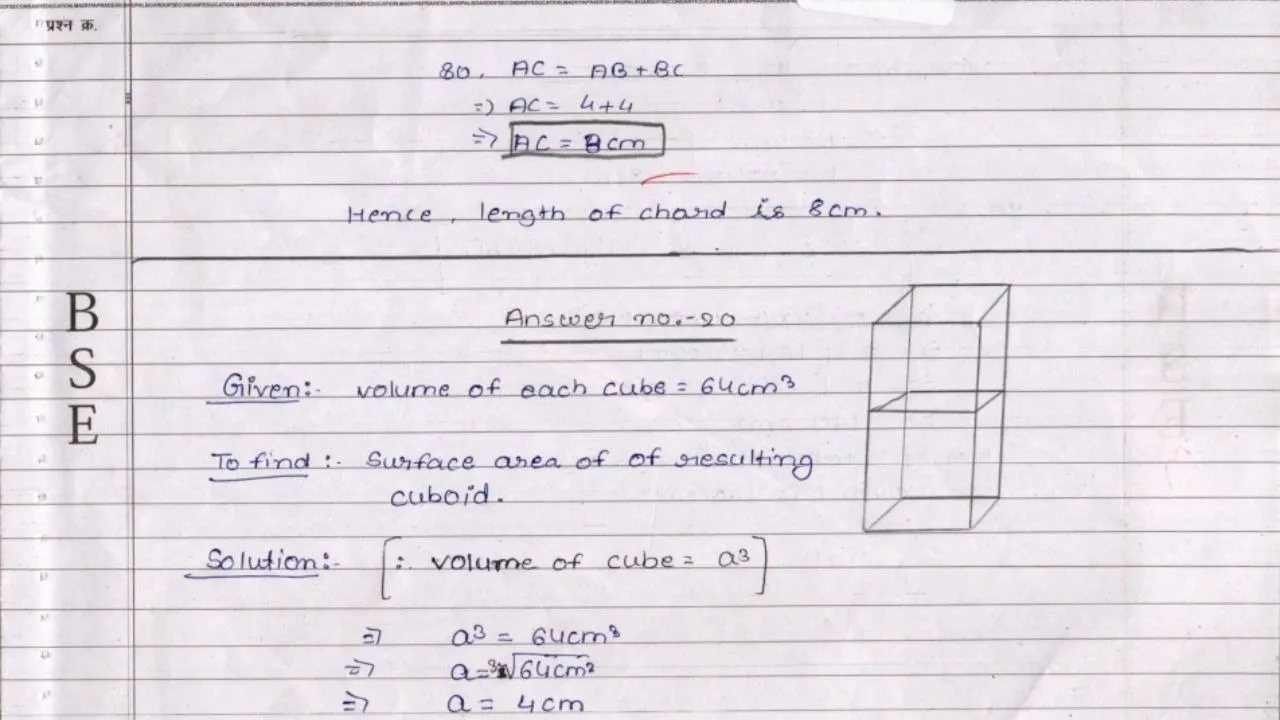 प्रश्न क्र.
80, AC = AB + BC
=> AC = 4+4
=> AC = 8cm
Hence, length of chard is 8cm.
B
S
E
Answer no.-20
Given:- volume of each cube = 64cm³
To find :- Surface area of of resulting
cuboid.
Solution:- [∵ volume of cube = a³]
=> a³ = 64cm³
=> a = ³√64cm³
=> a = 4cm